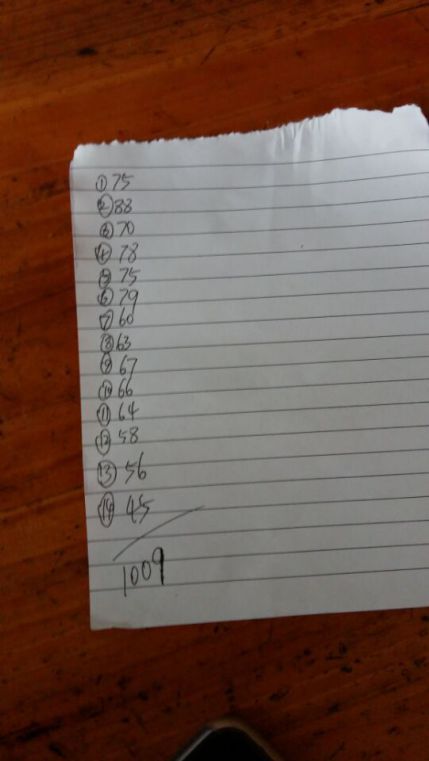 ① 75
② 88
③ 70
④ 78
⑤ 75
⑥ 79
⑦ 60
⑧ 63
⑨ 67
⑩ 66
⑪ 64
⑫ 58
⑬ 56
⑭ 45
1009